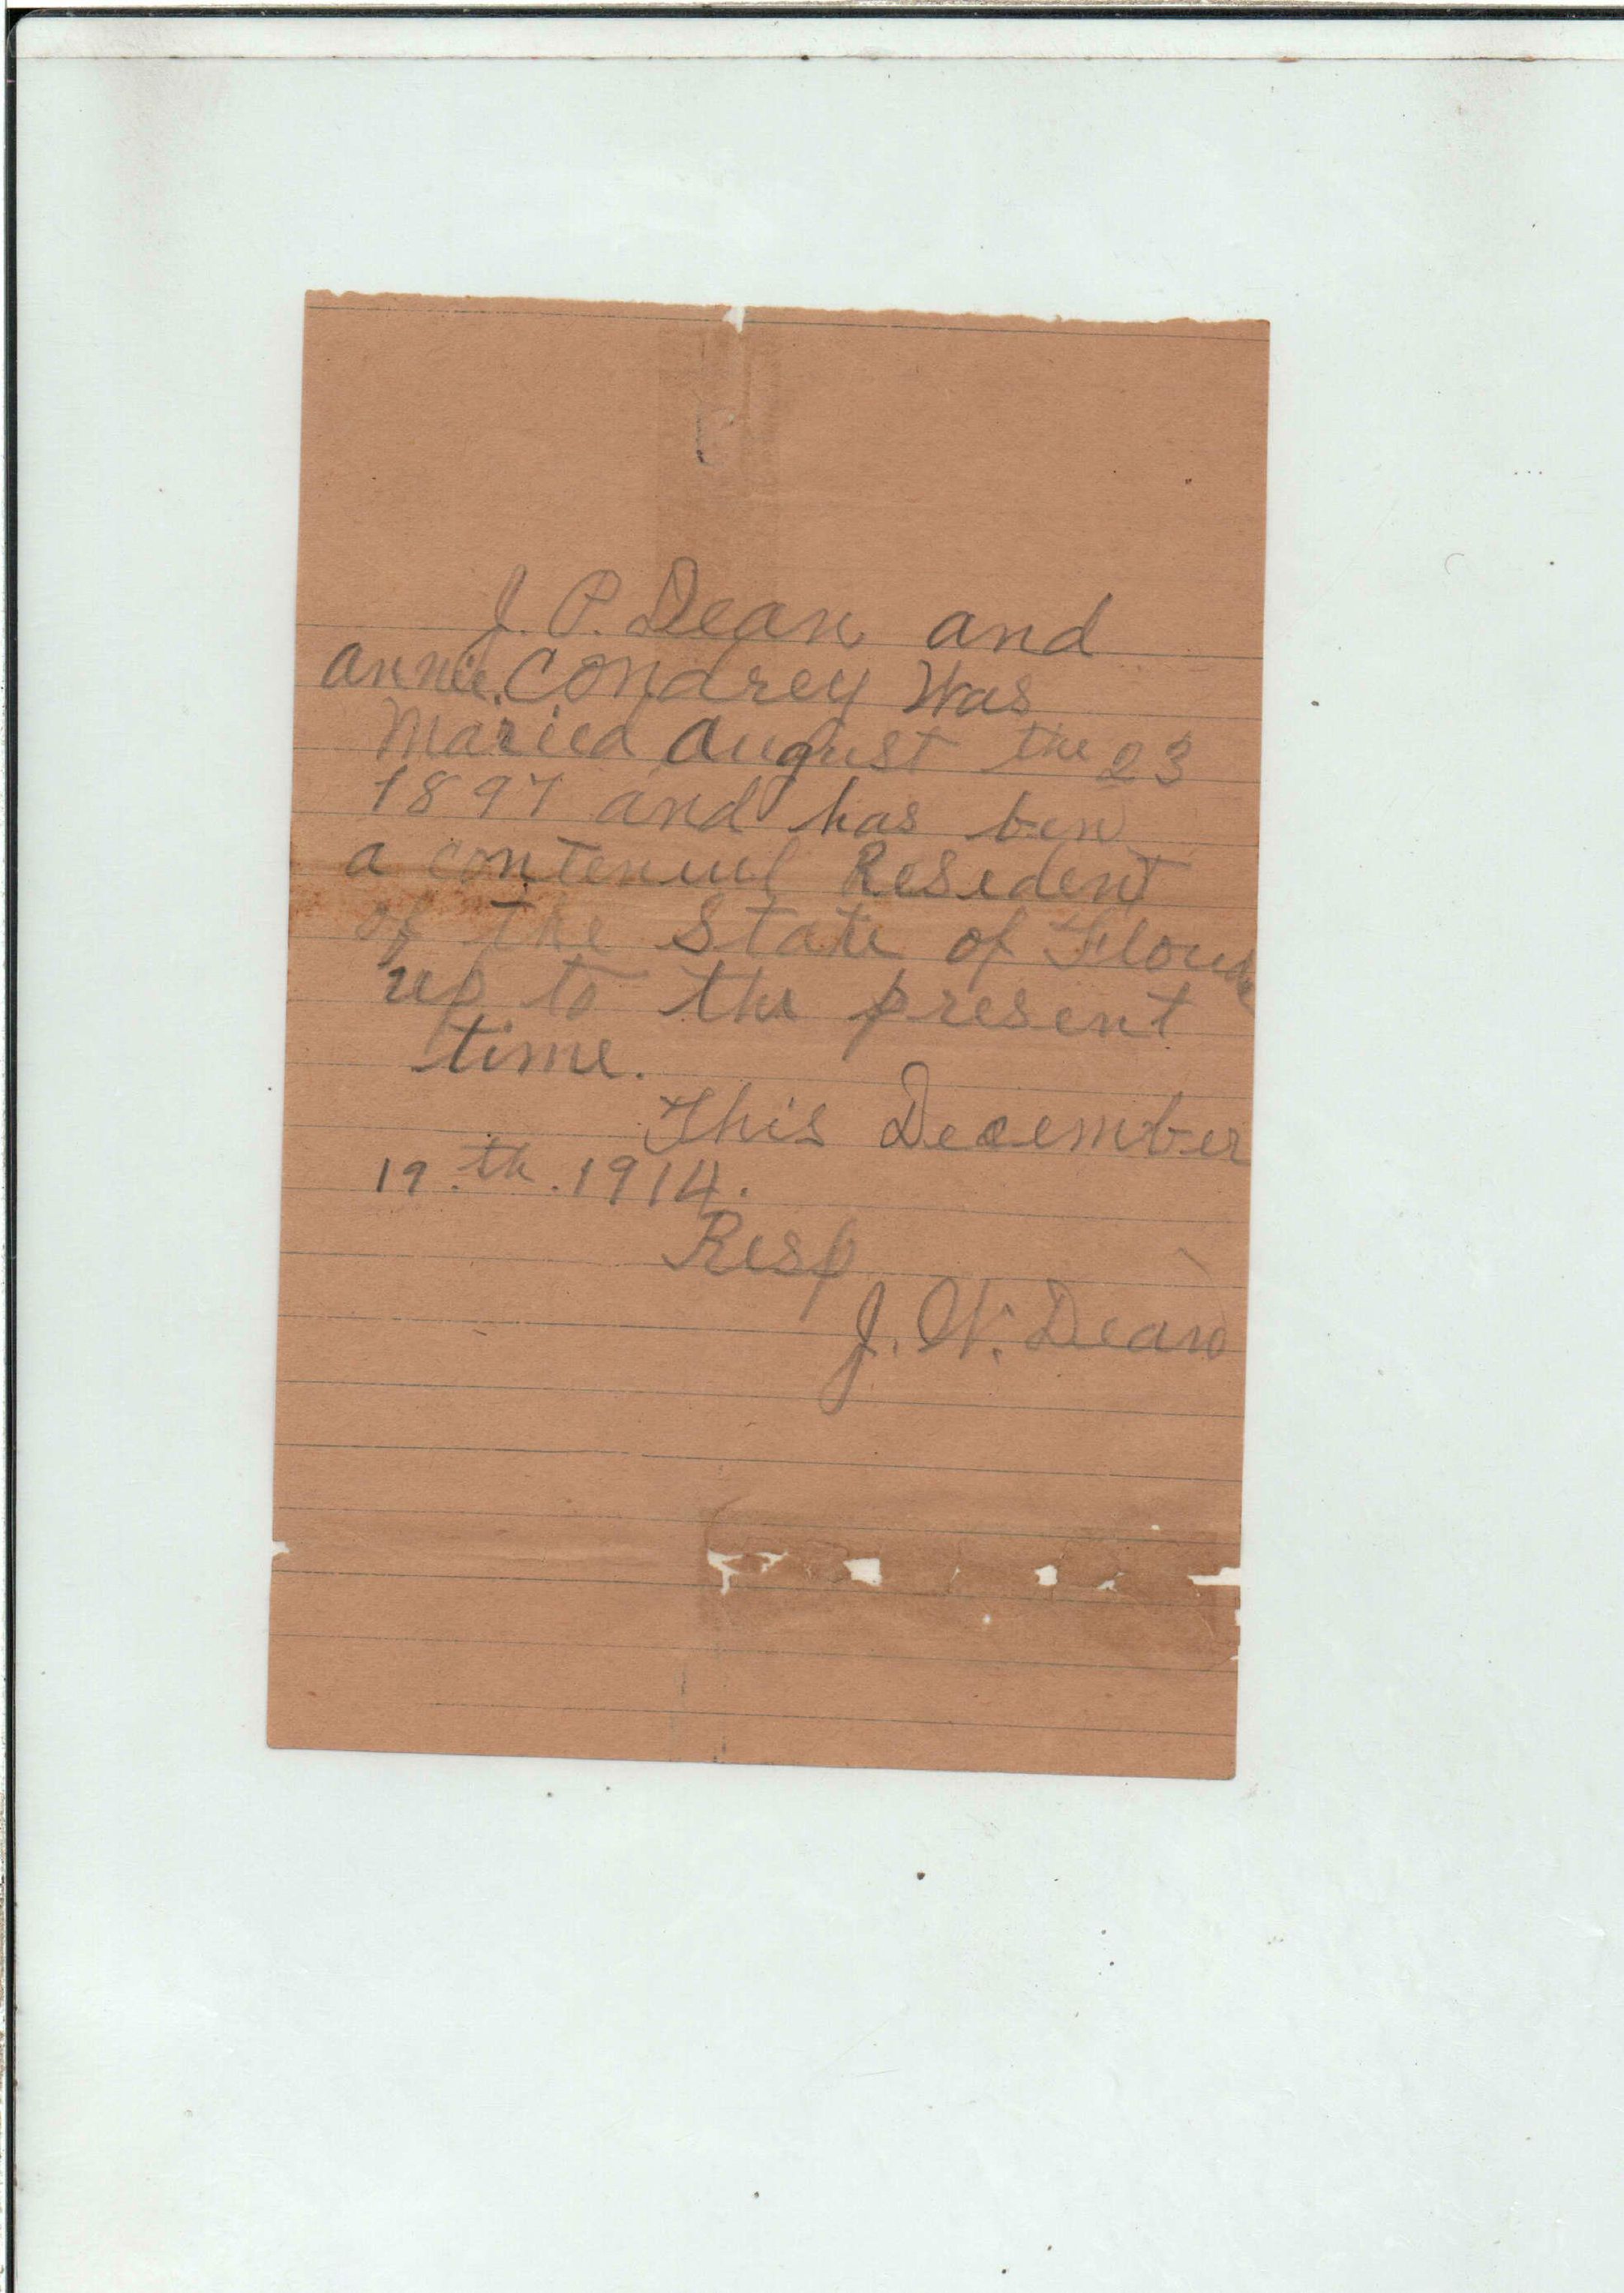 J. P. Dean and
annie. Condrey Was
Maried august the 23
1897 and has ben
a contenuel Resedent
of the State of Florida
up to the present
time.
This December
19.th.1914.
Resp
J. W. Dean